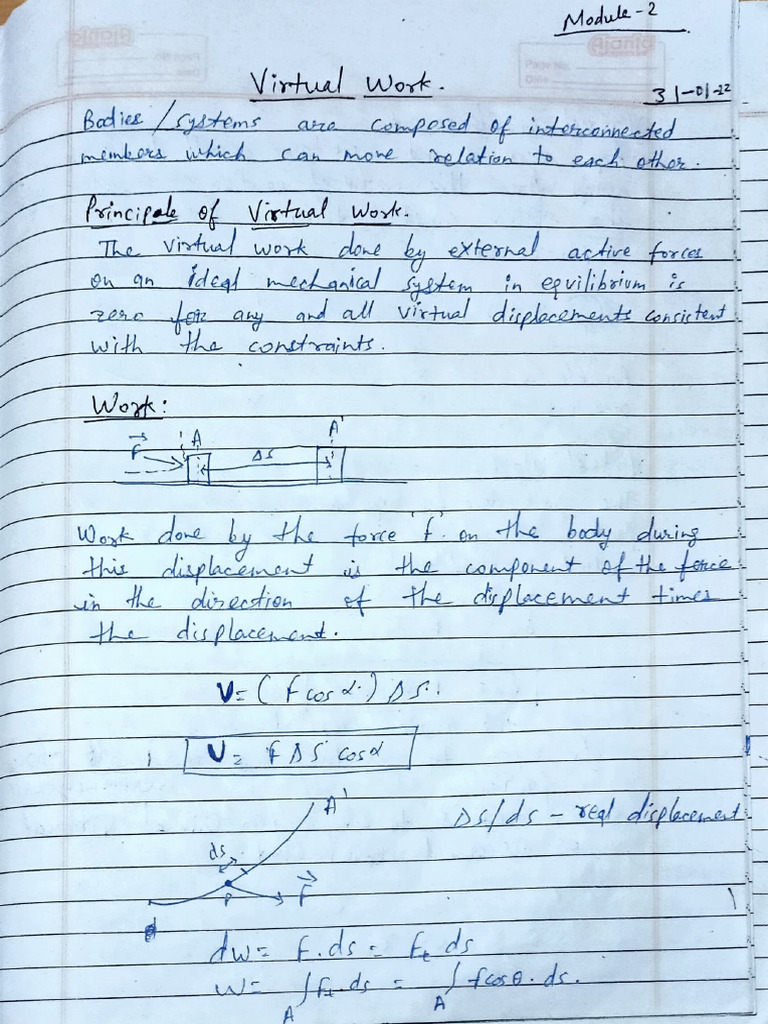 Module-2
Virtual Work.
31-01-22
Bodies/systems are composed of interconnected
members which can move relation to each other.
Principale of Virtual Work.
The virtual work done by external active forces
on an ideal mechanical system in equilibrium is
zero for any and all virtual displacements consistent
with the constraints.
Work:
F A Δs A'
Work done by the force 'F' on the body during
this displacement is the component of the force
in the direction of the displacement times
the displacement.
U = (F cos α.) Δs.
U = F Δs cosα
A'
Δs/ds - real displacement
ds
P F
dw = F.ds = Ft ds
W = ∫Ft.ds = ∫fcosθ.ds.
A A